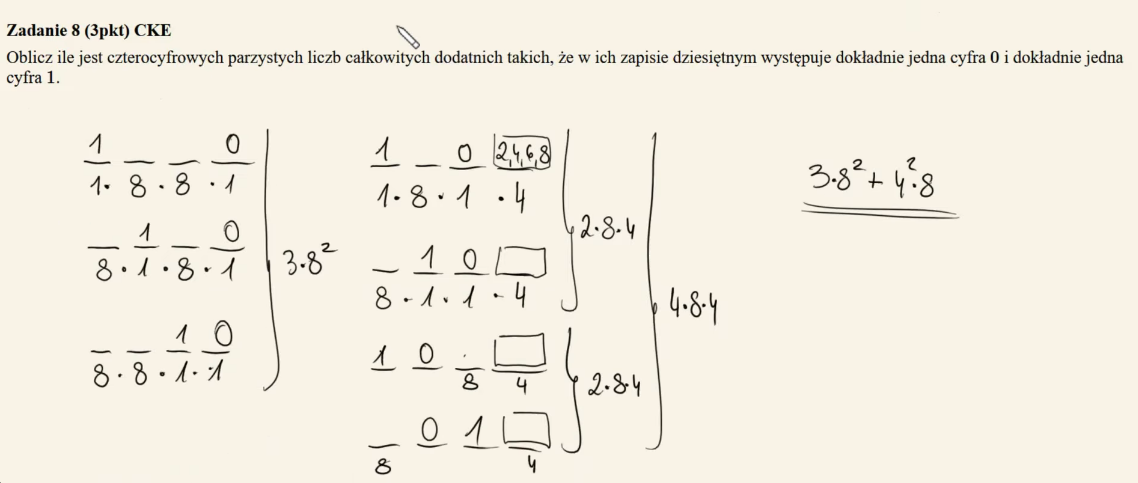 Zadanie 8 (3pkt) CKE
Oblicz ile jest czterocyfrowych parzystych liczb całkowitych dodatnich takich, że w ich zapisie dziesiętnym występuje dokładnie jedna cyfra 0 i dokładnie jedna
cyfra 1.
1 _ _ 0
1 · 8 · 8 · 1
_ 1 _ 0
8 · 1 · 8 · 1
_ _ 1 0
8 · 8 · 1 · 1
3·8²
1 _ 0 2,4,6,8
1 · 8 · 1 · 4
_ 1 0
8 · 1 · 1 · 4
2·8·4
1 0 _
8 4
_ 0 1
8 4
2·8·4
4·8·4
3·8² + 4²·8